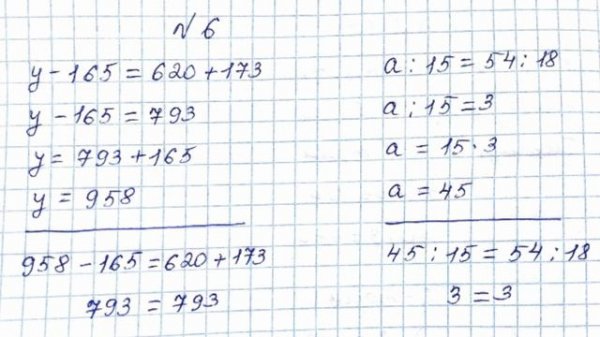 № 6
y - 165 = 620 + 173
y - 165 = 793
y = 793 + 165
y = 958
958 - 165 = 620 + 173
793 = 793
a : 15 = 54 : 18
a : 15 = 3
a = 15 · 3
a = 45
45 : 15 = 54 : 18
3 = 3